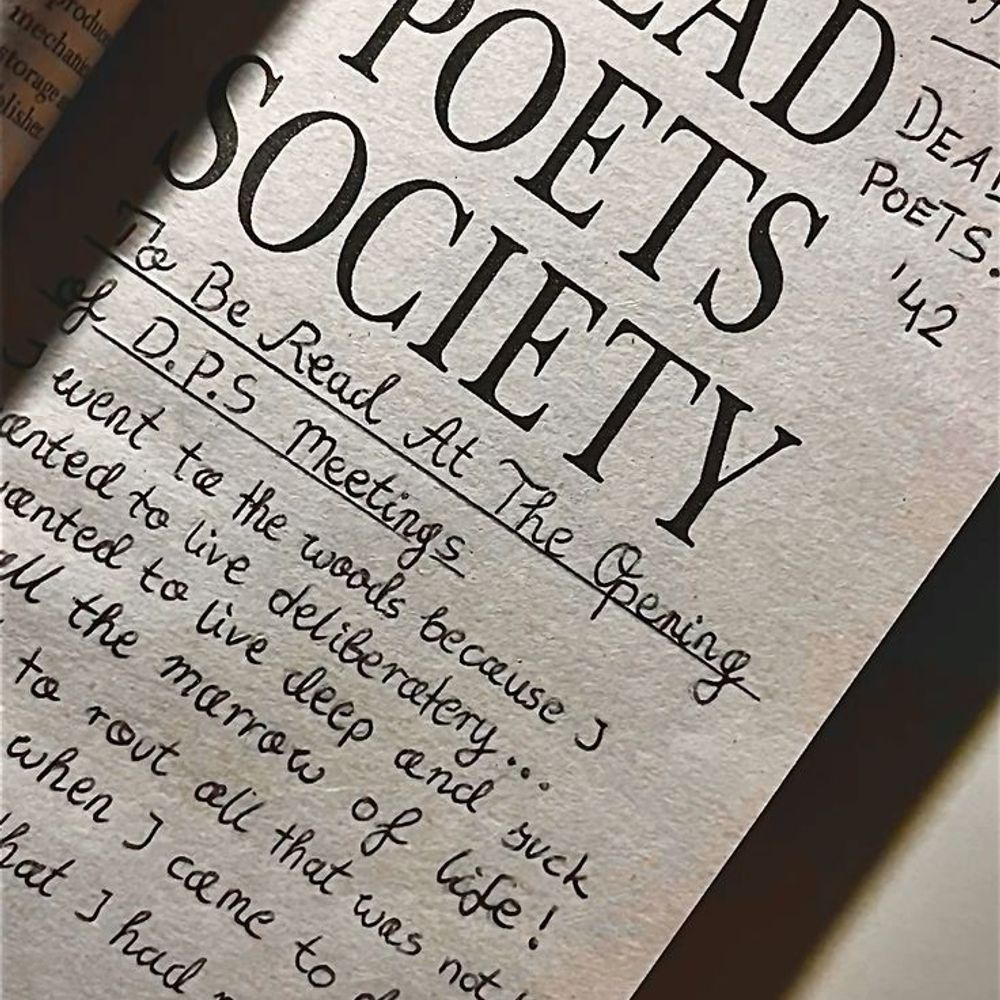 produc
mechanic
storage a
olisher
EAD
POETS
SOCIETY
DEAD
POETS.
'42
To Be Read At The Opening
of D.P.S Meetings
I went to the woods because I
anted to live deliberatery...
wanted to live deep and suck
all the marrow of life!
to rout all that was not
when I came to
hat I had